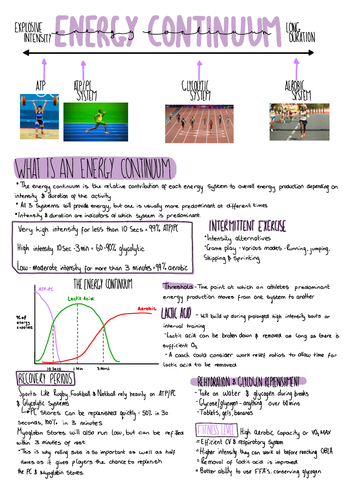 EXPLOSIVE
INTENSITY
ENERGY CONTINUUM
energy continuum
LONG
DURATION
ATP
ATP/PC
SYSTEM
GLYCOLYTIC
SYSTEM
AEROBIC
SYSTEM
WHAT IS AN ENERGY CONTINUUM
* The energy continuum is the relative contribution of each energy system to overall energy production depending on
intensity & duration of the activity
* All 3 systems will provide energy, but one is usually more predominant at different times
* Intensity & duration are indicators of which system is predominant
Very high intensity for less than 10 secs = 99% ATP/PC
High intensity 10sec-3min = 60-90% glycolytic
Low-moderate intensity for more than 3 minutes = 99% aerobic
INTERMITTENT EXERCISE
*Intensity alternatives
*Game play - various modes - Running, jumping,
Skipping & Sprinting
THE ENERGY CONTINUUM
ATP-PC
Lactic Acid
Aerobic
% of
energy
supplied
10 Secs
1 Min
3 Mins
Threshold - The point at which an athletes predominant
energy production moves from one system to another
LACTIC ACID - Will build up during prolonged high intensity bouts or
interval training
- Lactic acid can be broken down & removed as long as there is
sufficient O₂
- A coach could consider work relief ratios to allow time for
lactic acid to be removed
RECOVERY PERIODS
Sports like Rugby, Football & Netball rely heavily on ATP/PC
& Glycolytic Systems
PC Stores can be replenished quickly - 50% in 30
seconds, 100% in 3 minutes
Myoglobin Stores will also run low, but can be refilled
within 3 minutes of rest
* This is why rolling subs is so important as well as half
times as it gives players the chance to replenish
the PC & Myoglobin Stores
REHYDRATION & GLYCOGEN REPLENISHMENT
- Take on water & glycogen during breaks
- Glucose/glycogen - anything over 60mins
- Tablets, gels, bananas
FITNESS LEVEL: High Aerobic Capacity or VO₂ MAX
= Efficient CV & respiratory system
+ Higher intensity they can work at before reaching OBLA
+ Removal of lactic acid is improved
+ Better ability to use FFA's, conserving glycogen